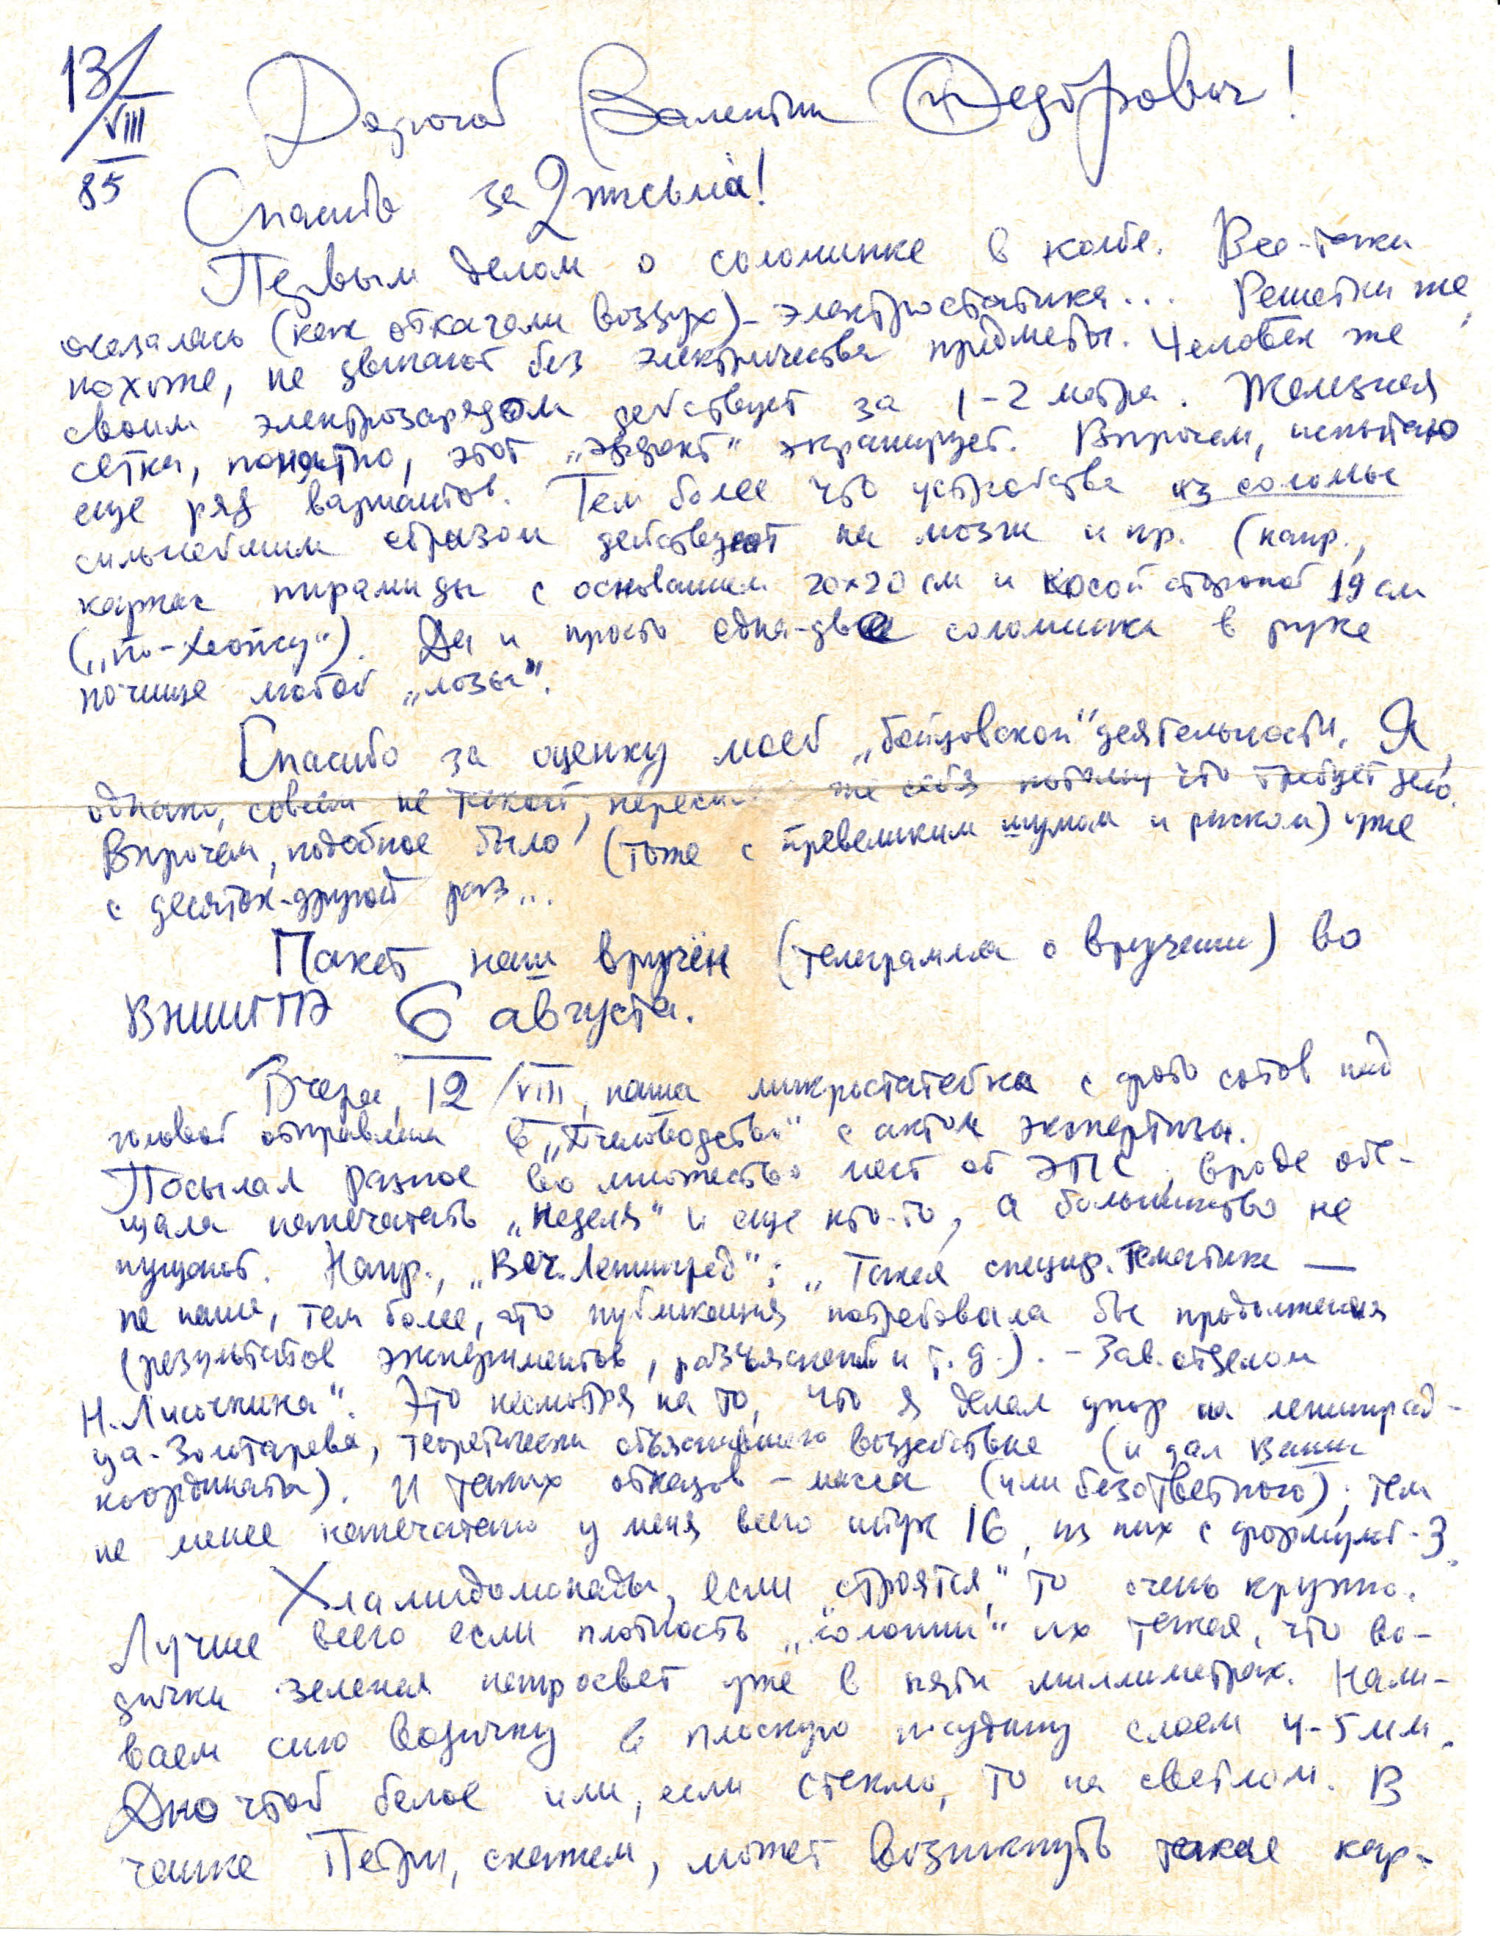 13/VIII
85
Дорогой Валентин Федорович!
Спасибо за 2 письма!
Первым делом о соломинке в колбе. Все-таки
оказалась (как откачали воздух) – электростатика... Решетки же,
похоже, не двигают без электричества предметы. Человек же
своим электрозарядом действует за 1-2 метра. Железная
сетка, понятно, этот „эффект" экранирует. Впрочем, испытаю
еще ряд вариантов. Тем более что устройства из соломы
сильнейшим образом действуют на мозги и пр. (напр.,
каркас пирамиды с основанием 20×20 см и косой стороной 19 см
(„по-Хеопсу"). Да и просто одна-две соломинки в руке
почище любой „лозы".
Спасибо за оценку моей „бойцовской" деятельности. Я,
однако, совсем не такой, же себя потому что требует дело.
Впрочем, подобное было (тоже с превеликим шумом и риском) уже
с десяток-другой раз...
Пакет наш вручён (телеграмма о вручении) во
ВНИИГПЭ 6 августа.
Вчера, 12/VIII, наша микростатейка с фото сотов над
головой отправлена в „Пчеловодство" с актом экспертизы.
Посылал разное во множество мест об ЭПС, вроде обе-
щала напечатать „Неделя" и еще кто-то, а большинство не
пущают. Напр., „Веч. Ленинград": „Такая специф. тематика —
не наша, тем более, что публикация потребовала бы продолжения
(результатов экспериментов, разъяснений и т.д.). – Зав. отделом
Н. Лисичкина". Это несмотря на то, что я делал упор на ленинград-
ца-Золотарева, теоретически объяснившего воздействие (и дал Ваши
координаты). И таких отказов – масса (или безответного); тем
не менее напечатано у меня всего штук 16, из них с формулой - 3.
Хламидомонады, если „строятся", то очень кружно.
Лучше всего если плотность „колонии" их такая, что во-
дичка зеленая напросвет уже в пяти миллиметрах. Нали-
ваем сию водичку в плоскую посудину слоем 4-5 мм.
Дно чтоб белое или, если стекло, то на светлом. В
чашке Петри, скажем, может возникнуть такая кар-